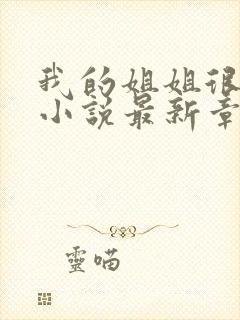 我的姐姐很
小说最新章
靈喵